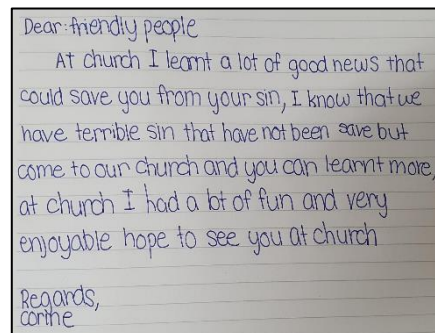 Dear: friendly people
At church I learnt a lot of good news that
could save you from your sin, I know that we
have terrible sin that have not been save but
come to our church and you can learnt more,
at church I had a lot of fun and very
enjoyable hope to see you at church
Regards,
corine